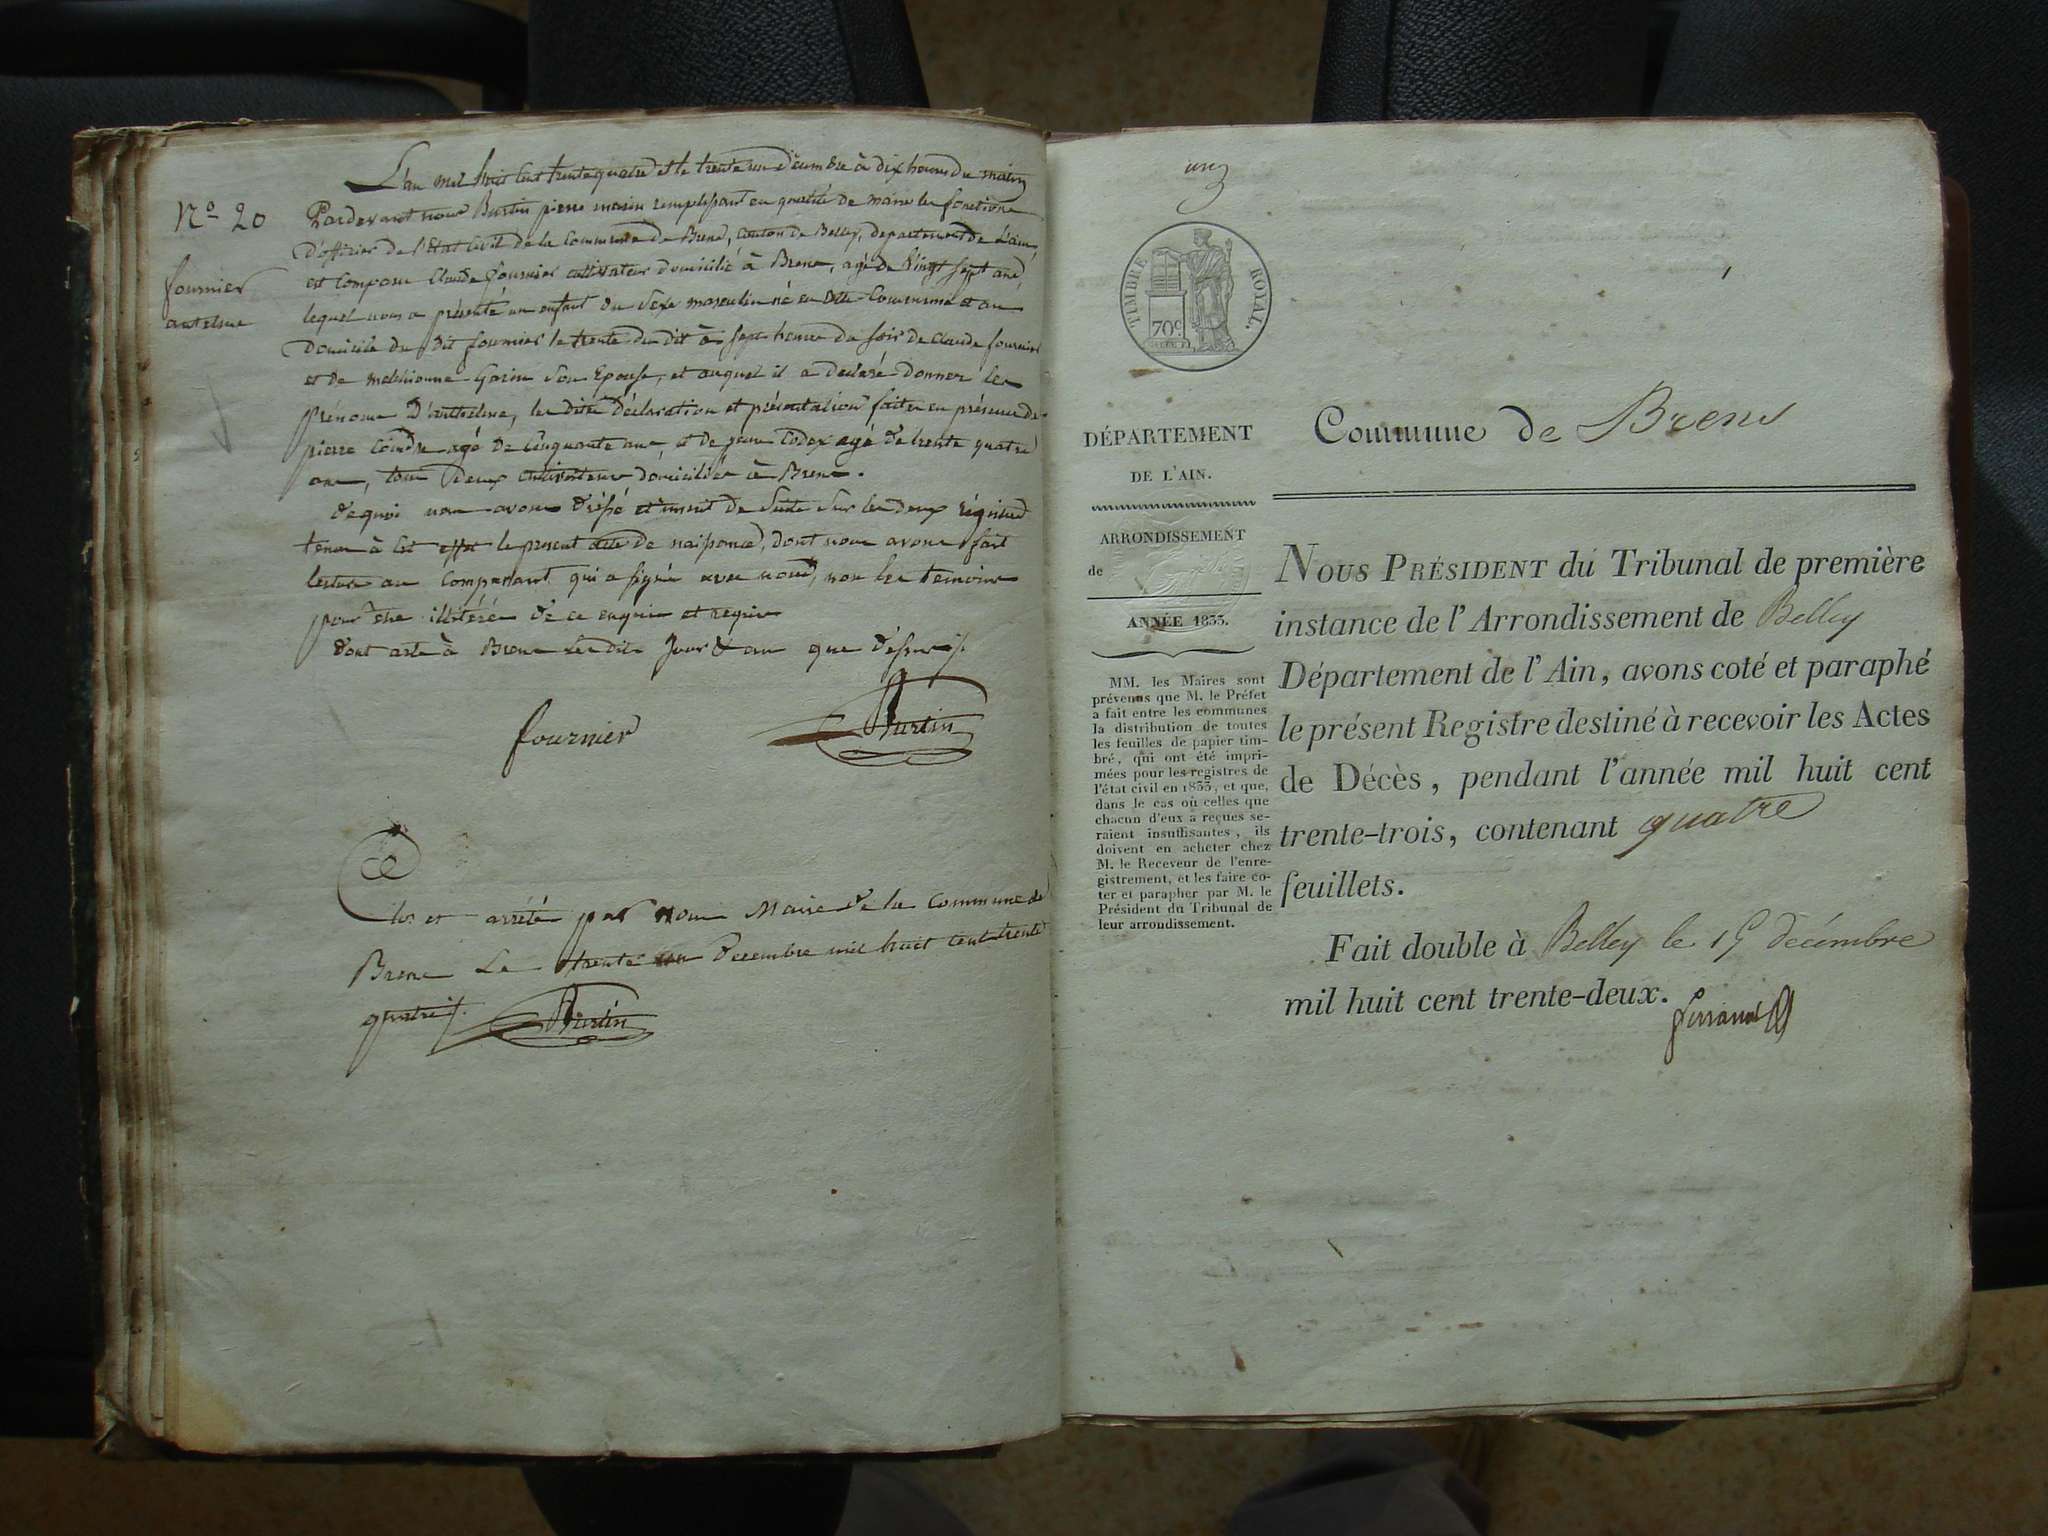 L'an mil huit cent trente quatre et le trente un décembre à dix heures du matin
Nº 20
Pardevant nous Burtin pierre maire remplissant en qualité de maire les fonctions
D'officier de l'état Civil de la Commune de Brens, Canton de Belley, departement de L'ain,
fournier
est Comparu Claude fournier cultivateur domicilié à Brens, agé de Vingt sept ans,
antelme
lequel nous a présenté un enfant du Sexe masculin né en dite Commune et au
Domicile du dit fournier le trente du dit à sept heures du soir de claude fournier
et de melchionne Garin Son Epouse, et auquel il a déclaré donner les
prénoms D'anthelme, les dites Déclaration et présentation faites en présence de
pierre Coindre agé de Cinquante ans, et de jean Codex agé de trente quatre
ans, tous deux cultivateurs domiciliés à Brens.
de quoi nous avons dréssé et inscrit de Suite Sur les deux régistres
tenus à Cet effet le present acte de naissance, dont nous avons fait
lecture au Comparant qui a signé avec nous, non les temoins
pour être illétérés de ce enquis et requis
dont acte à Brens les dits Jour & an que déssus
fournier Burtin
Clos et arrêté par nous Maire de la Commune de
Brens Le trente un Decembre mil huit cent trente
quatre
Burtin
un
TIMBRE ROYAL.
70c.
Commune de Brens
DÉPARTEMENT
DE L'AIN.
ARRONDISSEMENT
de
ANNÉE 1833.
MM. les Maires sont
prévenus que M. le Préfet
a fait entre les communes
la distribution de toutes
les feuilles de papier tim-
bré, qui ont été impri-
mées pour les registres de
l'état civil en 1833, et que,
dans le cas où celles que
chacun d'eux a reçues se-
raient insuffisantes, ils
doivent en acheter chez
M. le Receveur de l'enre-
gistrement, et les faire co-
ter et parapher par M. le
Président du Tribunal de
leur arrondissement.
NOUS PRÉSIDENT du Tribunal de première
instance de l'Arrondissement de Belley
Département de l'Ain, avons coté et paraphé
le présent Registre destiné à recevoir les Actes
de Décès, pendant l'année mil huit cent
trente-trois, contenant quatre
feuillets.
Fait double à Belley le 15 décembre
mil huit cent trente-deux.